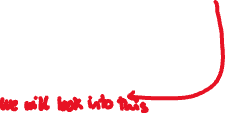 we will look into this